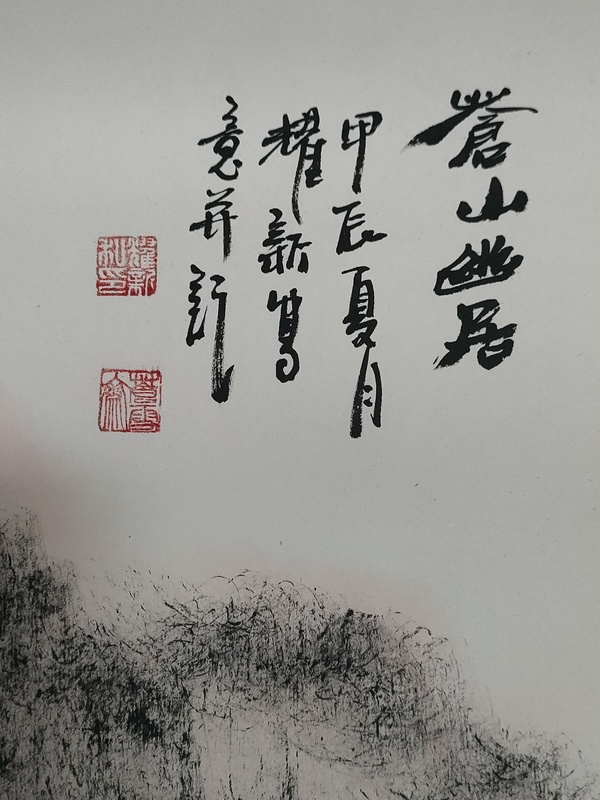 蒼山幽居
甲辰夏月
耀新寫
意并記
耀新
私印